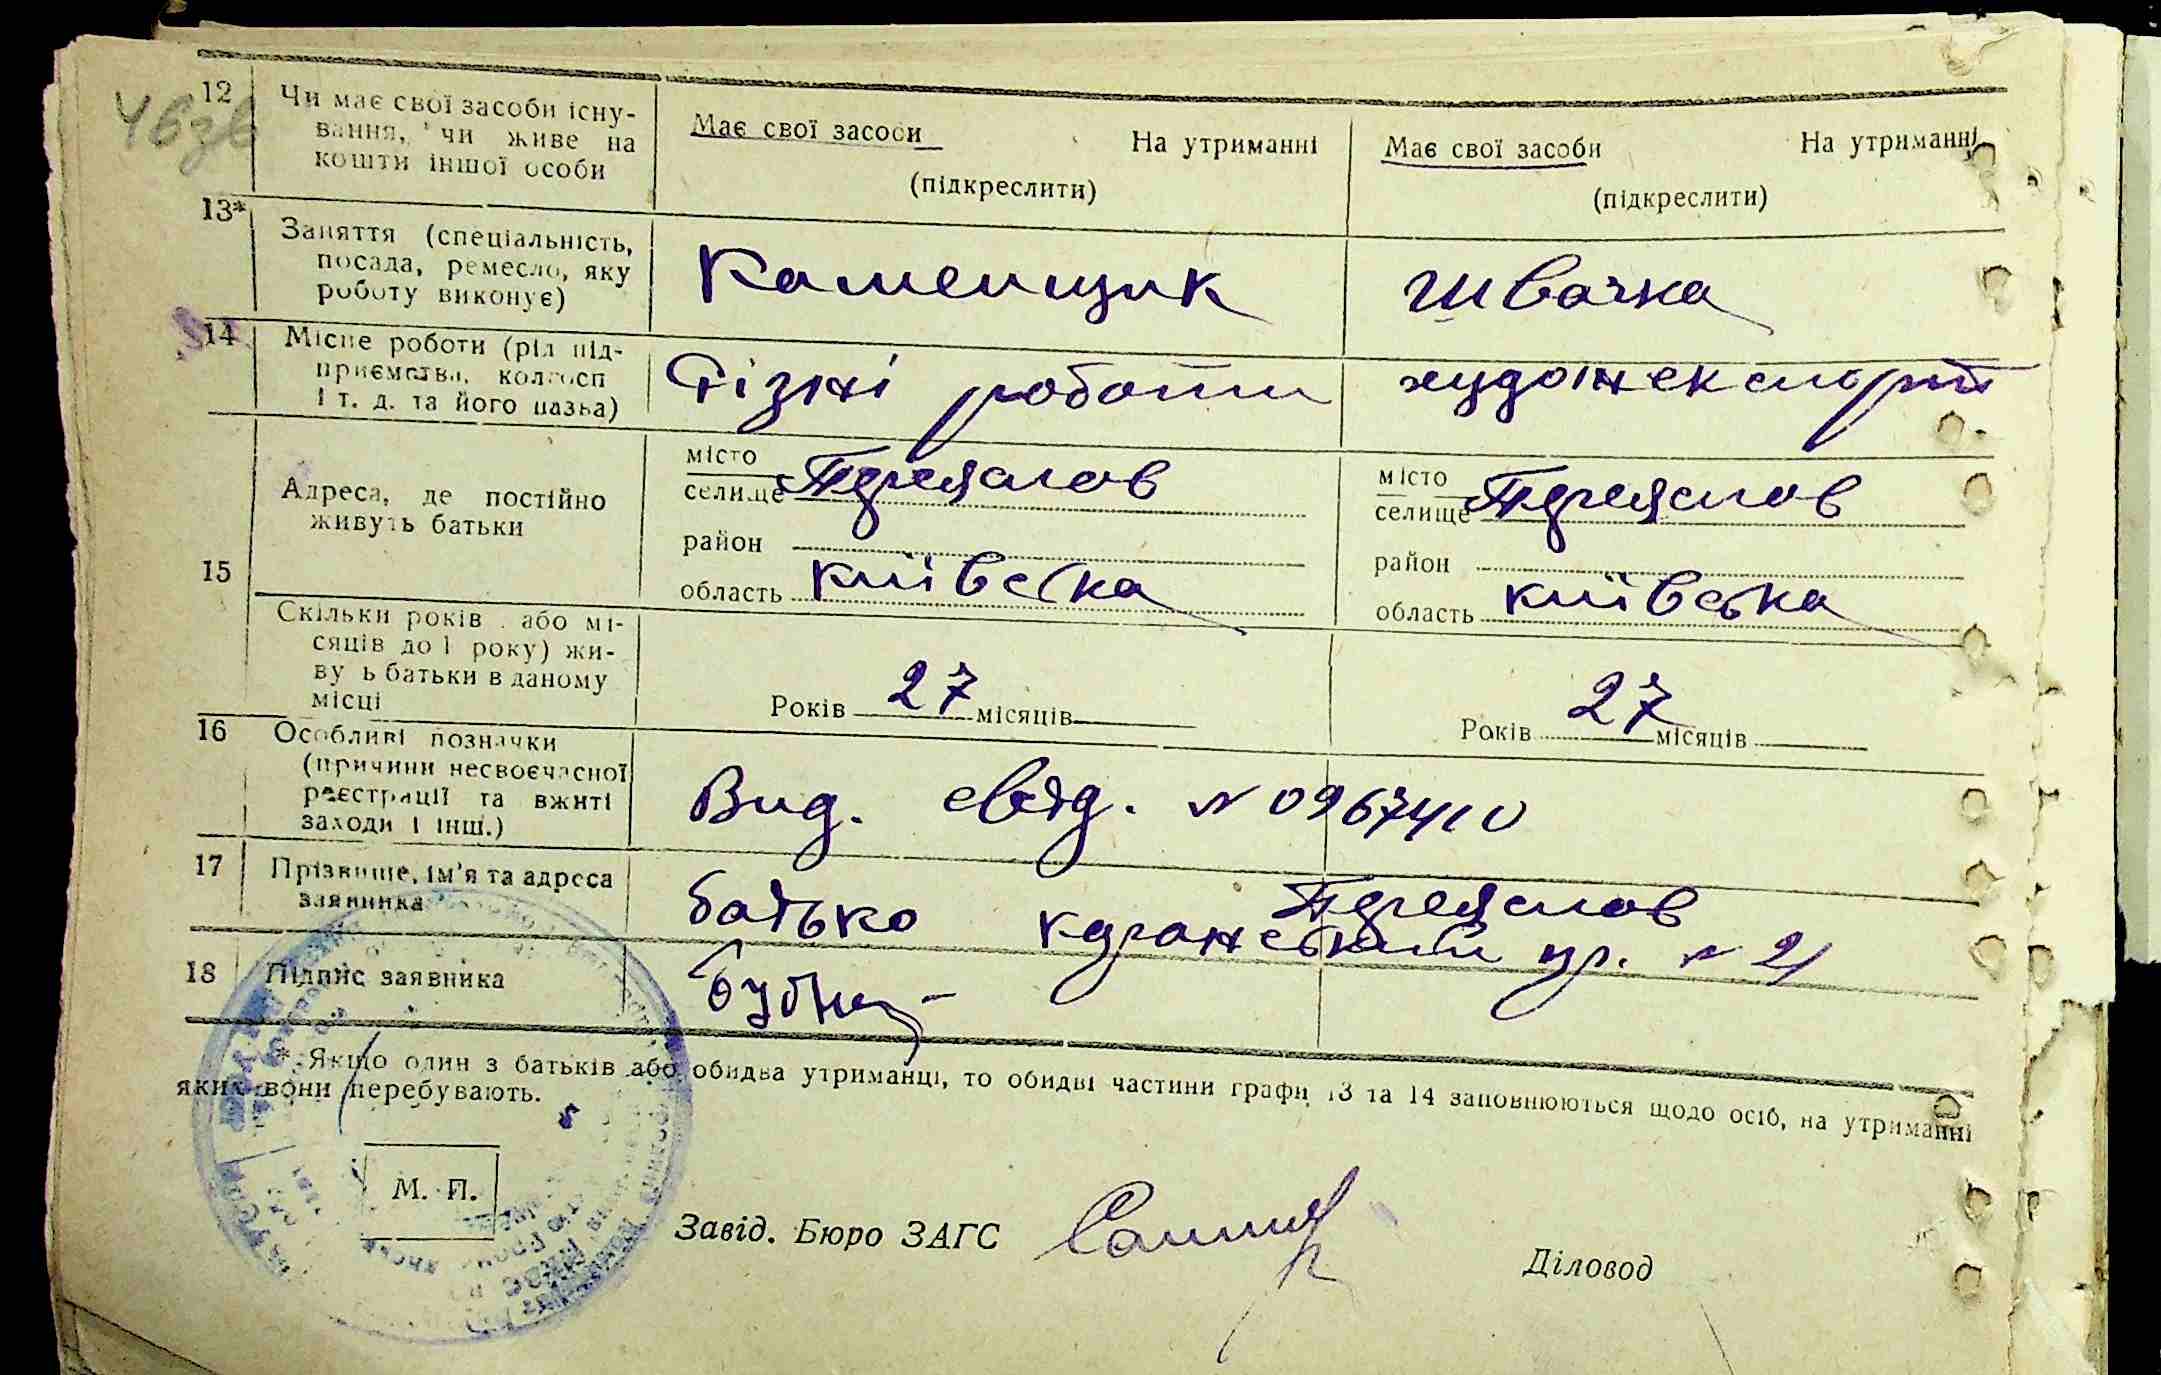 12 Чи має свої засоби існу-
вання, чи живе на
кошти іншої особи
Має свої засоби На утриманні
(підкреслити)
Має свої засоби На утриманні
(підкреслити)
13* Заняття (спеціальність,
посада, ремесло, яку
роботу виконує)
Каменщик
Швачка
14 Місце роботи (рід під-
приємства, колгосп
і т. д. та його назва)
Різні роботи
худоінекспорт
15 Адреса, де постійно
живуть батьки
місто
селище Переяслов
район
область Київська
місто
селище Переяслов
район
область Київська
Скільки років або мі-
сяців до 1 року) жи-
вуть батьки в даному
місці
Років 27 місяців
Років 27 місяців
16 Особливі позначки
(причини несвоєчасної
реєстрації та вжиті
заходи і інш.)
Вид. свід. № 0967410
17 Прізвище, ім'я та адреса
заявника
батько Переяслов
18 Підпис заявника
* Якщо один з батьків або обидва утриманці, то обидві частини графи 13 та 14 заповнюються щодо осіб, на утриманні
яких вони перебувають.
М. П.
Завід. Бюро ЗАГС
Діловод